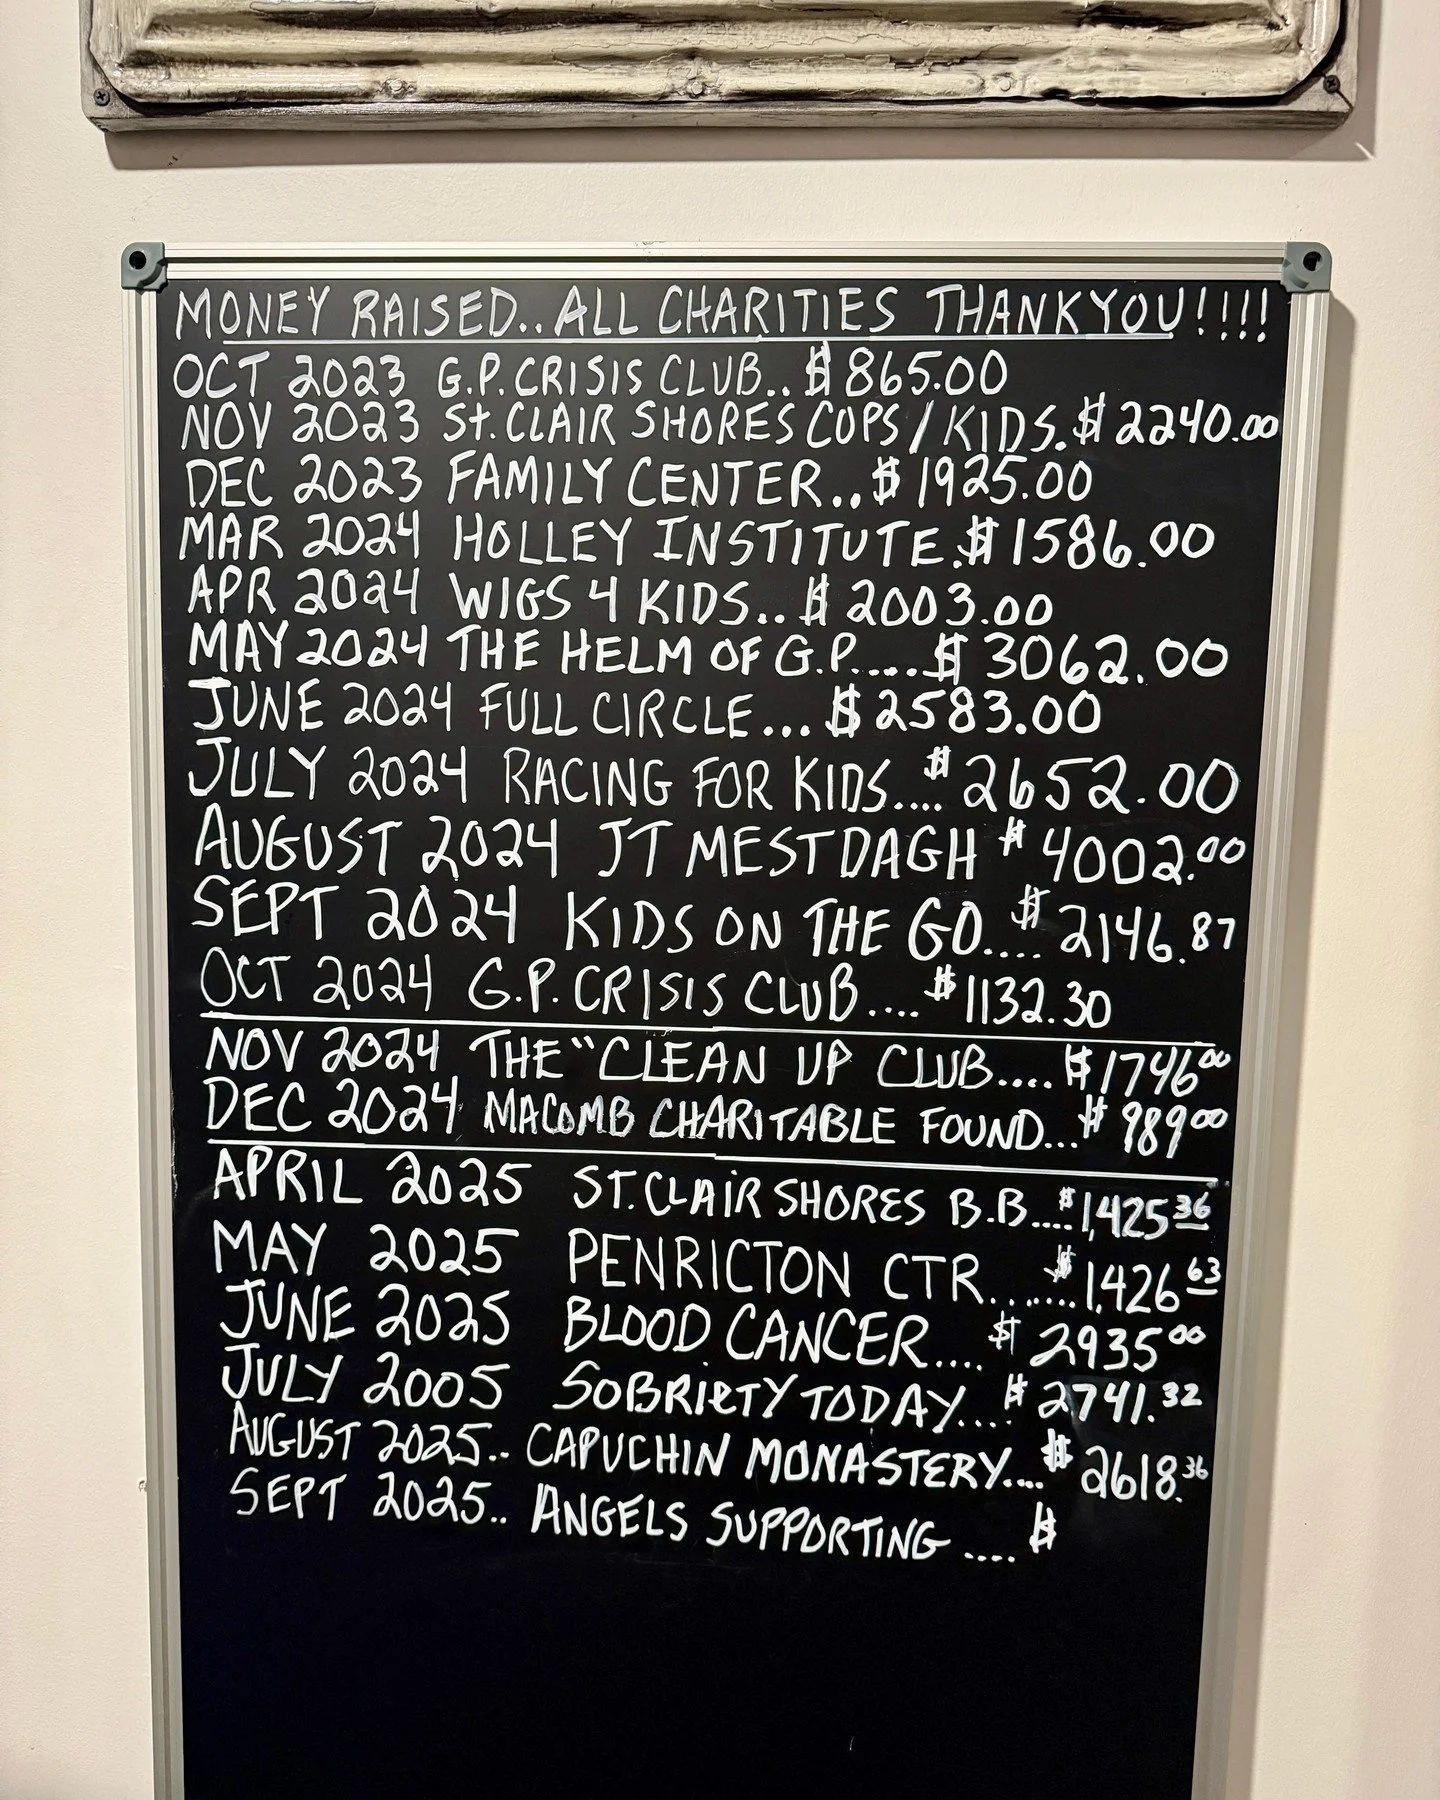 MONEY RAISED.. ALL CHARITIES THANKYOU!!!!
OCT 2023 G.P. CRISIS CLUB.. $865.00
NOV 2023 St. CLAIR SHORES COPS/KIDS. $2240.00
DEC 2023 FAMILY CENTER.. $1925.00
MAR 2024 HOLLEY INSTITUTE. $1586.00
APR 2024 WIGS 4 KIDS.. $2003.00
MAY 2024 THE HELM OF G.P..... $3062.00
JUNE 2024 FULL CIRCLE... $2583.00
JULY 2024 RACING FOR KIDS.... $2652.00
AUGUST 2024 JT MESTDAGH $4002.00
SEPT 2024 KIDS ON THE GO.... $2146.87
OCT 2024 G.P. CRISIS CLUB .... $1132.30
NOV 2024 THE "CLEAN UP CLUB.... $1746 00
DEC 2024 MACOMB CHARITABLE FOUND... $989 00
APRIL 2025 ST. CLAIR SHORES B.B.... $1,425 36
MAY 2025 PENRICTON CTR....... $1,426 63
JUNE 2025 BLOOD CANCER.... $2935 00
JULY 2005 SOBRIETY TODAY.... $2741.32
AUGUST 2025.. CAPUCHIN MONASTERY.... $2618.36
SEPT 2025.. ANGELS SUPPORTING .... $